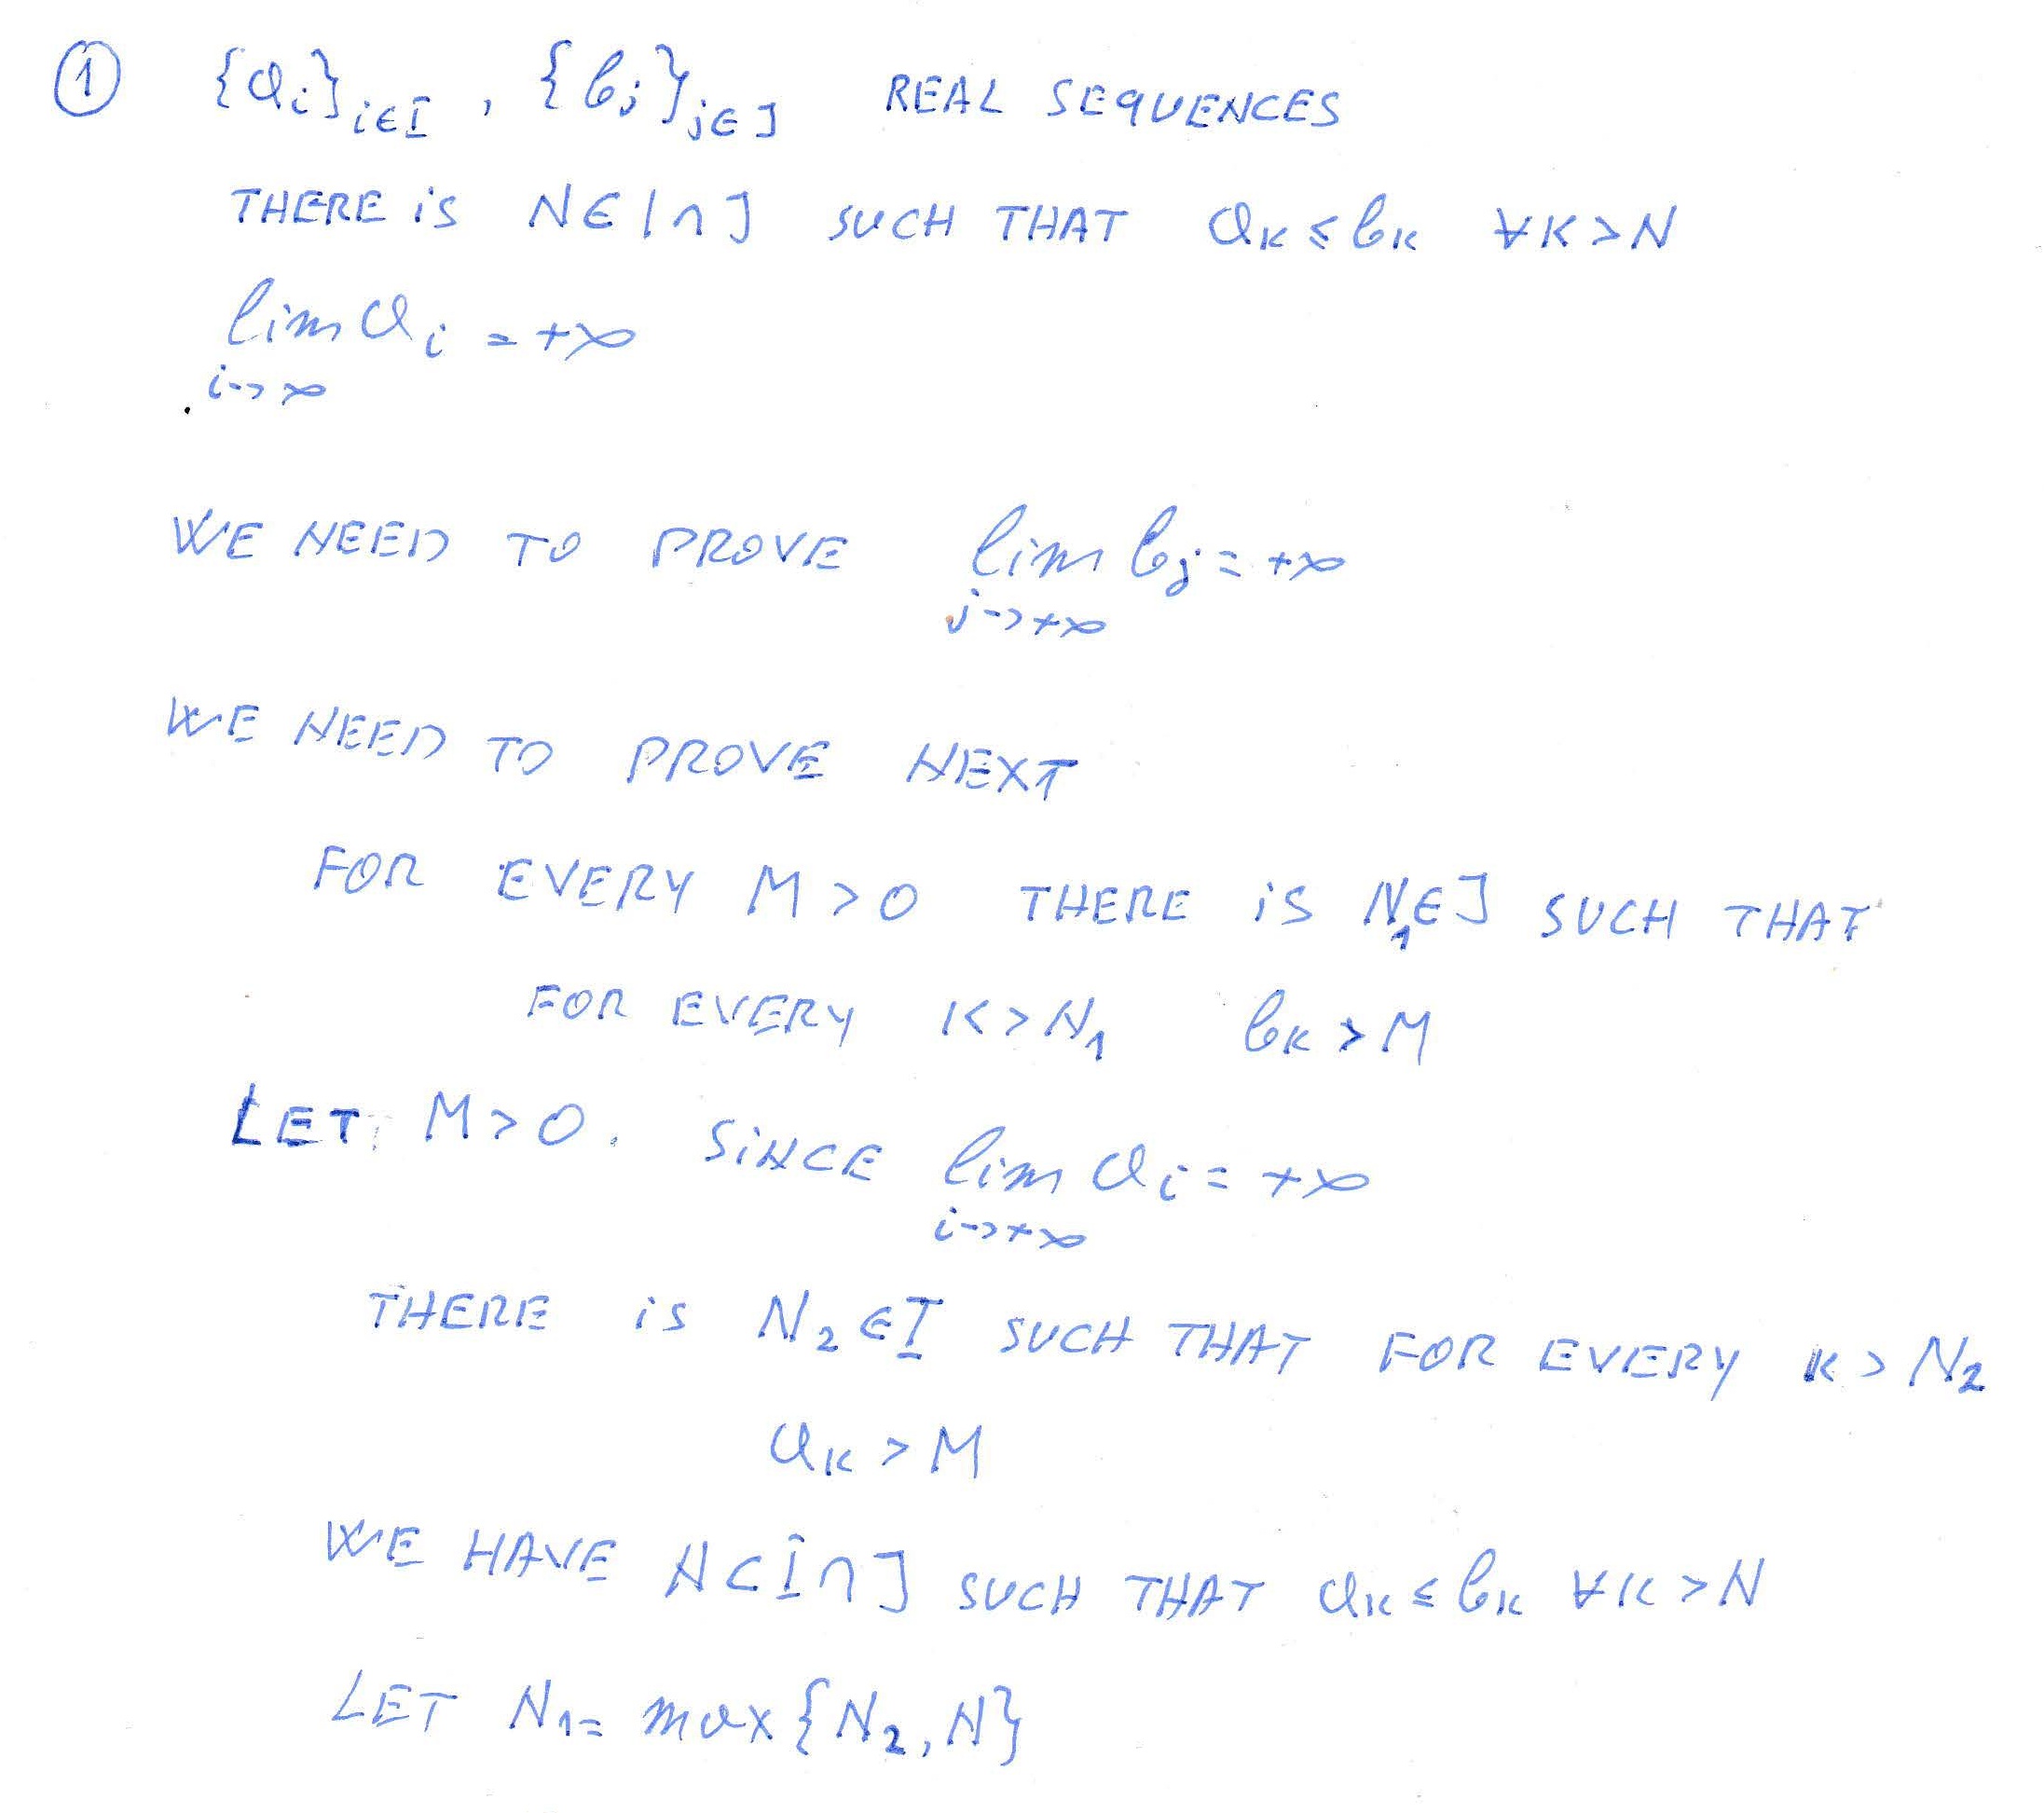 ① {a_i}_{i∈I} , {b_j}_{j∈J} REAL SEQUENCES
THERE iS N∈I∩J SUCH THAT a_K ≤ b_K ∀K>N
lim a_i = +∞
i→∞
WE NEED TO PROVE lim b_j = +∞
j→+∞
WE NEED TO PROVE NEXT
FOR EVERY M>0 THERE iS N_1∈J SUCH THAT
FOR EVERY K>N_1 b_K > M
LET M>0. SiNCE lim a_i = +∞
i→+∞
THERE iS N_2∈I SUCH THAT FOR EVERY K>N_2
a_K > M
WE HAVE N⊂I∩J SUCH THAT a_K ≤ b_K ∀K>N
LET N_1 = max{N_2, N}